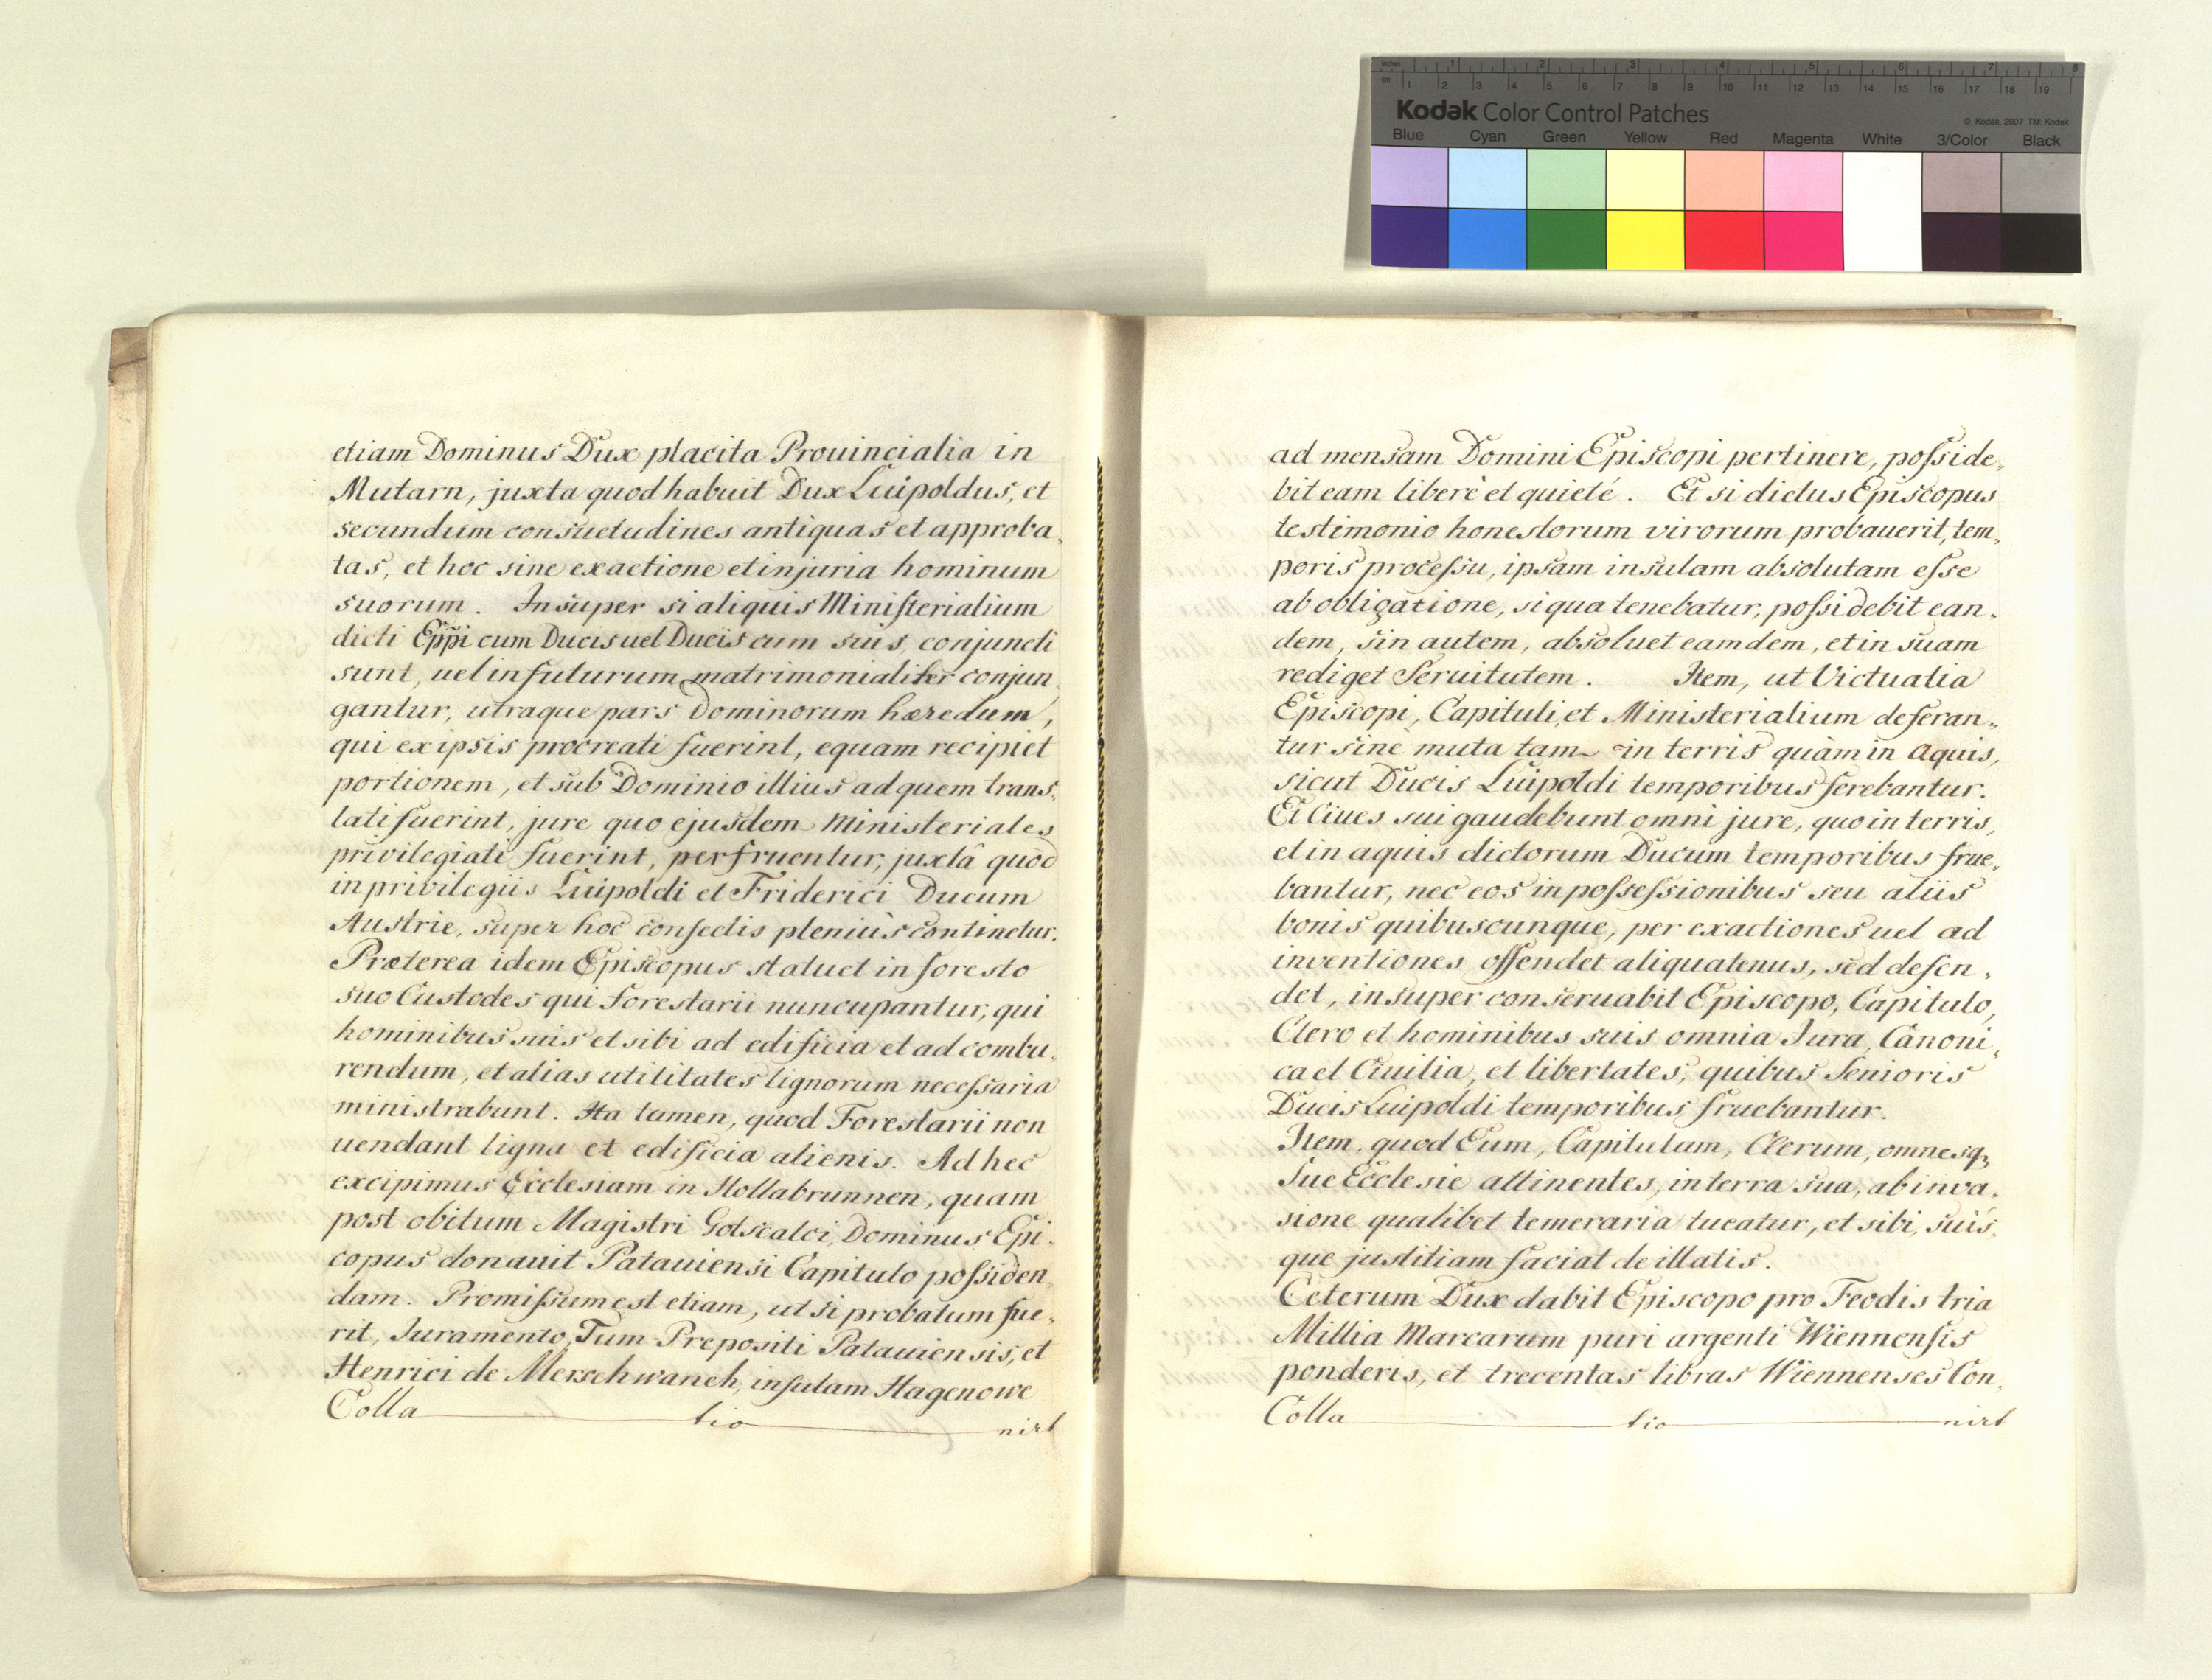 inches 1 2 3 4 5 6 7 8
cm 1 2 3 4 5 6 7 8 9 10 11 12 13 14 15 16 17 18 19
Kodak Color Control Patches
© Kodak, 2007 TM: Kodak
Blue Cyan Green Yellow Red Magenta White 3/Color Black
etiam Dominus Dux placita Prouincialia in
Mutarn, juxta quod habuit Dux Luipoldus, et
secundum consuetudines antiquas et approba„
tas, et hoc sine exactione et injuria hominum
suorum. Insuper si aliquis Ministerialium
dicti Eppi cum Ducis uel Ducis cum suis, conjuncti
sunt, uel in futurum matrimonialiter conjun„
gantur, utraque pars Dominorum hæredum,
qui ex ipsis procreati fuerint, equam recipiet
portionem, et sub Dominio illius ad quem trans„
lati fuerint, jure quo ejusdem Ministeriales
privilegiati fuerint, perfruentur, juxtâ quod
in privilegiis Luipoldi et Friderici Ducum
Austrie, super hoc confectis pleniùs continetur.
Præterea idem Episcopus statuet in foresto
suo Custodes qui Forestarii nuncupantur, qui
hominibus suis et sibi ad edificia et ad combu„
rendum, et alias utilitates lignorum necessaria
ministrabunt. Ita tamen, quod Forestarii non
uendant ligna et edificia alienis. Ad hec
excipimus Ecclesiam in Hollabrunnen, quam
post obitum Magistri Gotscalci, Dominus Epi„
copus donauit Patauiensi Capitulo possiden„
dam. Promissum est etiam, ut si probatum fue„
rit, Juramento, Tum Prepositi Patauiensis, et
Henrici de Merschwanch, insulam Hagenowe
Colla tio nirt
ad mensam Domini Episcopi pertinere, posside„
bit eam liberè et quieté. Et si dictus Episcopus
testimonio honestorum virorum probauerit, tem„
poris processu, ipsam insulam absolutam esse
ab obligatione, si qua tenebatur, possidebit ean„
dem, sin autem, absoluet eamdem, et in suam
rediget Seruitutem. Item, ut Victualia
Episcopi, Capituli, et Ministerialium deferan„
tur sine muta tam in terris quàm in aquis,
sicut Ducis Luipoldi temporibus ferebantur.
Et Ciues sui gaudebunt omni jure, quo in terris,
et in aquis dictorum Ducum temporibus frue„
bantur, nec eos in possessionibus seu aliis
bonis quibuscunque, per exactiones uel ad
inventiones offendet aliquatenus, sed defen„
det, insuper conseruabit Episcopo, Capitulo,
Clero et hominibus suis omnia Jura, Canoni„
ca et Ciuilia, et libertates, quibus Senioris
Ducis Luipoldi temporibus fruebantur.
Item, quod Eum, Capitulum, Clerum, omnesq;
Sue Ecclesie attinentes, in terra sua, ab inva„
sione qualibet temeraria tueatur, et sibi, suis„
que justitiam faciat de illatis.
Ceterum Dux dabit Episcopo pro Feodis tria
Millia Marcarum puri argenti Wiennensis
ponderis, et trecentas libras Wiennenses Con„
Colla tio nirt